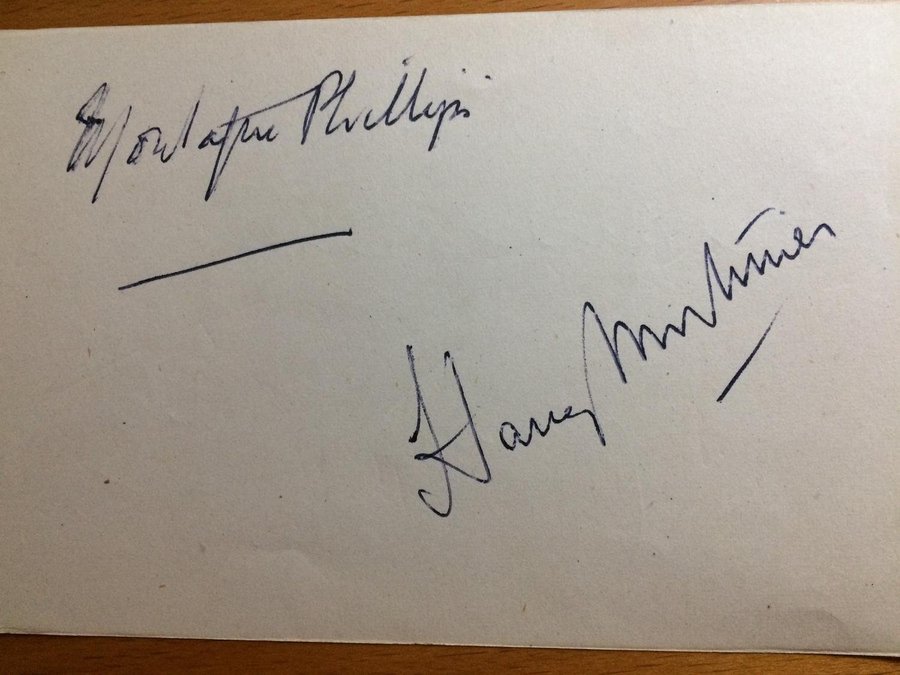 Montague Phillips
Harry Mortimer